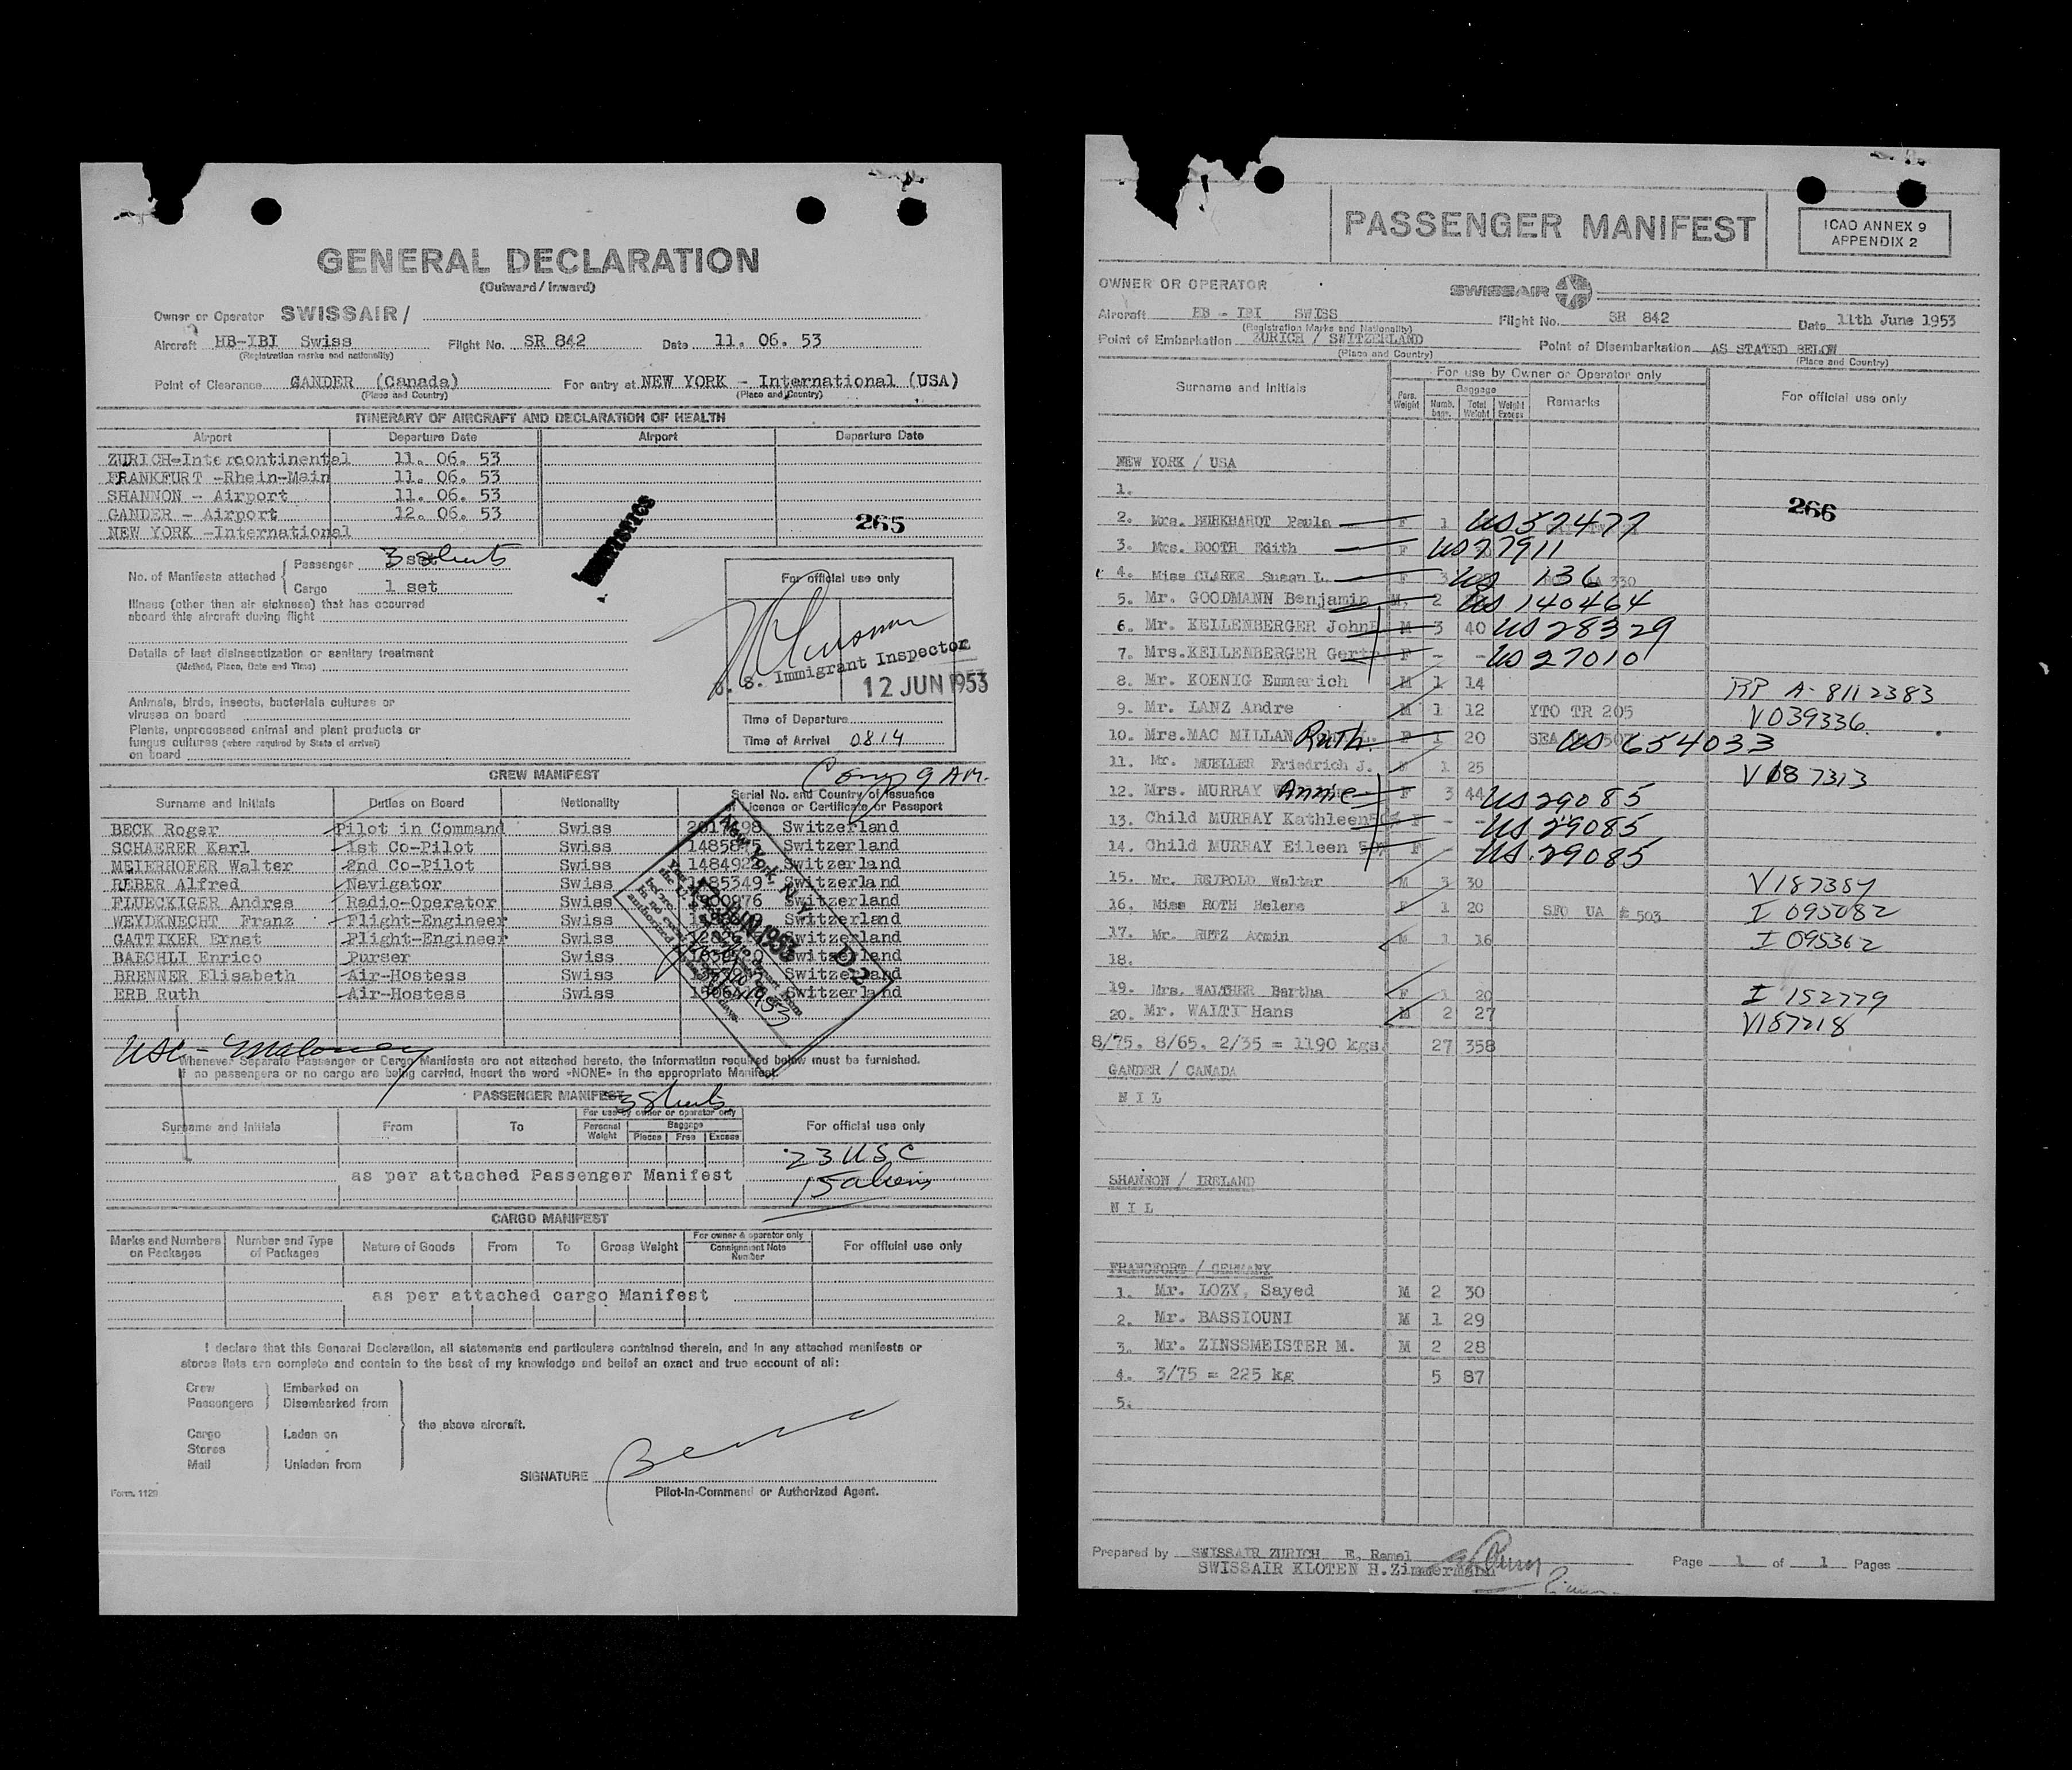 GENERAL DECLARATION
(Outward / Inward)
Owner or Operator SWISSAIR /
Aircraft HB-IBI Swiss Flight No. SR 842 Date 11. 06. 53
(Registration marks and nationality)
Point of Clearance GANDER (Canada) For entry at NEW YORK - International (USA)
(Place and Country) (Place and Country)
ITINERARY OF AIRCRAFT AND DECLARATION OF HEALTH
Airport Departure Date Airport Departure Date
ZURICH-Intercontinental 11. 06. 53
FRANKFURT -Rhein-Main 11. 06. 53
SHANNON - Airport 11. 06. 53
GANDER - Airport 12. 06. 53
NEW YORK -International
265
No. of Manifests attached
Passenger 3 sheets
Cargo 1 set
For official use only
Illness (other than air sickness) that has occurred
aboard this aircraft during flight
Details of last disinsectization or sanitary treatment
(Method, Place, Date and Time)
U. S. Immigrant Inspector
12 JUN 1953
Animals, birds, insects, bacterials cultures or
viruses on board
Plants, unprocessed animal and plant products or
fungus cultures (where required by State of arrival)
on board
Time of Departure
Time of Arrival 0814
CREW MANIFEST
Comp 9 AM.
Surname and Initials Duties on Board Nationality Serial No. and Country of Issuance
of Licence or Certificate or Passport
BECK Roger Pilot in Command Swiss Switzerland
SCHAERER Karl 1st Co-Pilot Swiss Switzerland
MEIERHOFER Walter 2nd Co-Pilot Swiss Switzerland
REBER Alfred Navigator Swiss Switzerland
FLUECKIGER Andrea Radio-Operator Swiss Switzerland
WEYDKNECHT Franz Flight-Engineer Swiss Switzerland
GATTIKER Ernst Flight-Engineer Swiss Switzerland
BAECHLI Enrico Purser Swiss Switzerland
BRENNER Elisabeth Air-Hostess Swiss Switzerland
ERB Ruth Air-Hostess Swiss Switzerland
New York, N. Y.
12 JUN 1953
Whenever Separate Passenger or Cargo Manifests are not attached hereto, the information required below must be furnished.
If no passengers or no cargo are being carried, insert the word «NONE» in the appropriate Manifest.
PASSENGER MANIFEST
3 Sheets
Surname and Initials From To For use by owner or operator only For official use only
Personal Weight Baggage
Pieces Free Excess
23 USC
as per attached Passenger Manifest
15 aliens
CARGO MANIFEST
Marks and Numbers on Packages Number and Type of Packages Nature of Goods From To Gross Weight For owner & operator only Consignment Note Number For official use only
as per attached cargo Manifest
I declare that this General Declaration, all statements and particulars contained therein, and in any attached manifests or
stores lists are complete and contain to the best of my knowledge and belief an exact and true account of all:
Crew Embarked on
Passengers Disembarked from
the above aircraft.
Cargo Laden on
Stores
Mail Unladen from
SIGNATURE
Pilot-in-Command or Authorized Agent.
Form. 1129
PASSENGER MANIFEST
ICAO ANNEX 9
APPENDIX 2
OWNER OR OPERATOR SWISSAIR
Aircraft HB - IBI SWISS Flight No. SR 842 Date 11th June 1953
(Registration Marks and Nationality)
Point of Embarkation ZURICH / SWITZERLAND Point of Disembarkation AS STATED BELOW
(Place and Country) (Place and Country)
Surname and Initials For use by Owner or Operator only For official use only
Pers. Weight Baggage Remarks
Numb. bags. Total Weight Weight Excess
NEW YORK / USA
1.
266
2. Mrs. BURKHARDT Paula F 1 US 57477
3. Mrs. BOOTH Edith F US 27911
4. Miss CLARKE Susan L. F 3 US 136
5. Mr. GOODMANN Benjamin M. 2 US 140464
6. Mr. KELLENBERGER John M 3 40 US 28329
7. Mrs. KELLENBERGER Gertr. F - - US 27010
8. Mr. KOENIG Emmerich M 1 14 RP A-8112383
9. Mr. LANZ Andre M 1 12 YTO TR 205 V 039336
10. Mrs. MAC MILLAN Ruth F 1 20 SEA US 654033
11. Mr. MUELLER Friedrich J. M 1 25 V 187313
12. Mrs. MURRAY Annie F 3 44 US 29085
13. Child MURRAY Kathleen F - - US 29085
14. Child MURRAY Eileen F - US 29085
15. Mr. REJPOLD Walter M 3 30 V 187387
16. Miss ROTH Helene F 1 20 SFO UA # 503 I 095082
17. Mr. RUTZ Armin M 1 16 I 095362
18.
19. Mrs. WALTHER Bertha F 1 20 I 152779
20. Mr. WALTI Hans M 2 27 V187218
8/75. 8/65. 2/35 = 1190 kgs. 27 358
GANDER / CANADA
N I L
SHANNON / IRELAND
N I L
FRANCFORT / GERMANY
1. Mr. LOZY, Sayed M 2 30
2. Mr. BASSIOUNI M 1 29
3. Mr. ZINSSMEISTER M. M 2 28
4. 3/75 = 225 kg 5 87
5.
Prepared by SWISSAIR ZURICH E. Ramel
SWISSAIR KLOTEN H.Zimmermann
Page 1 of 1 Pages